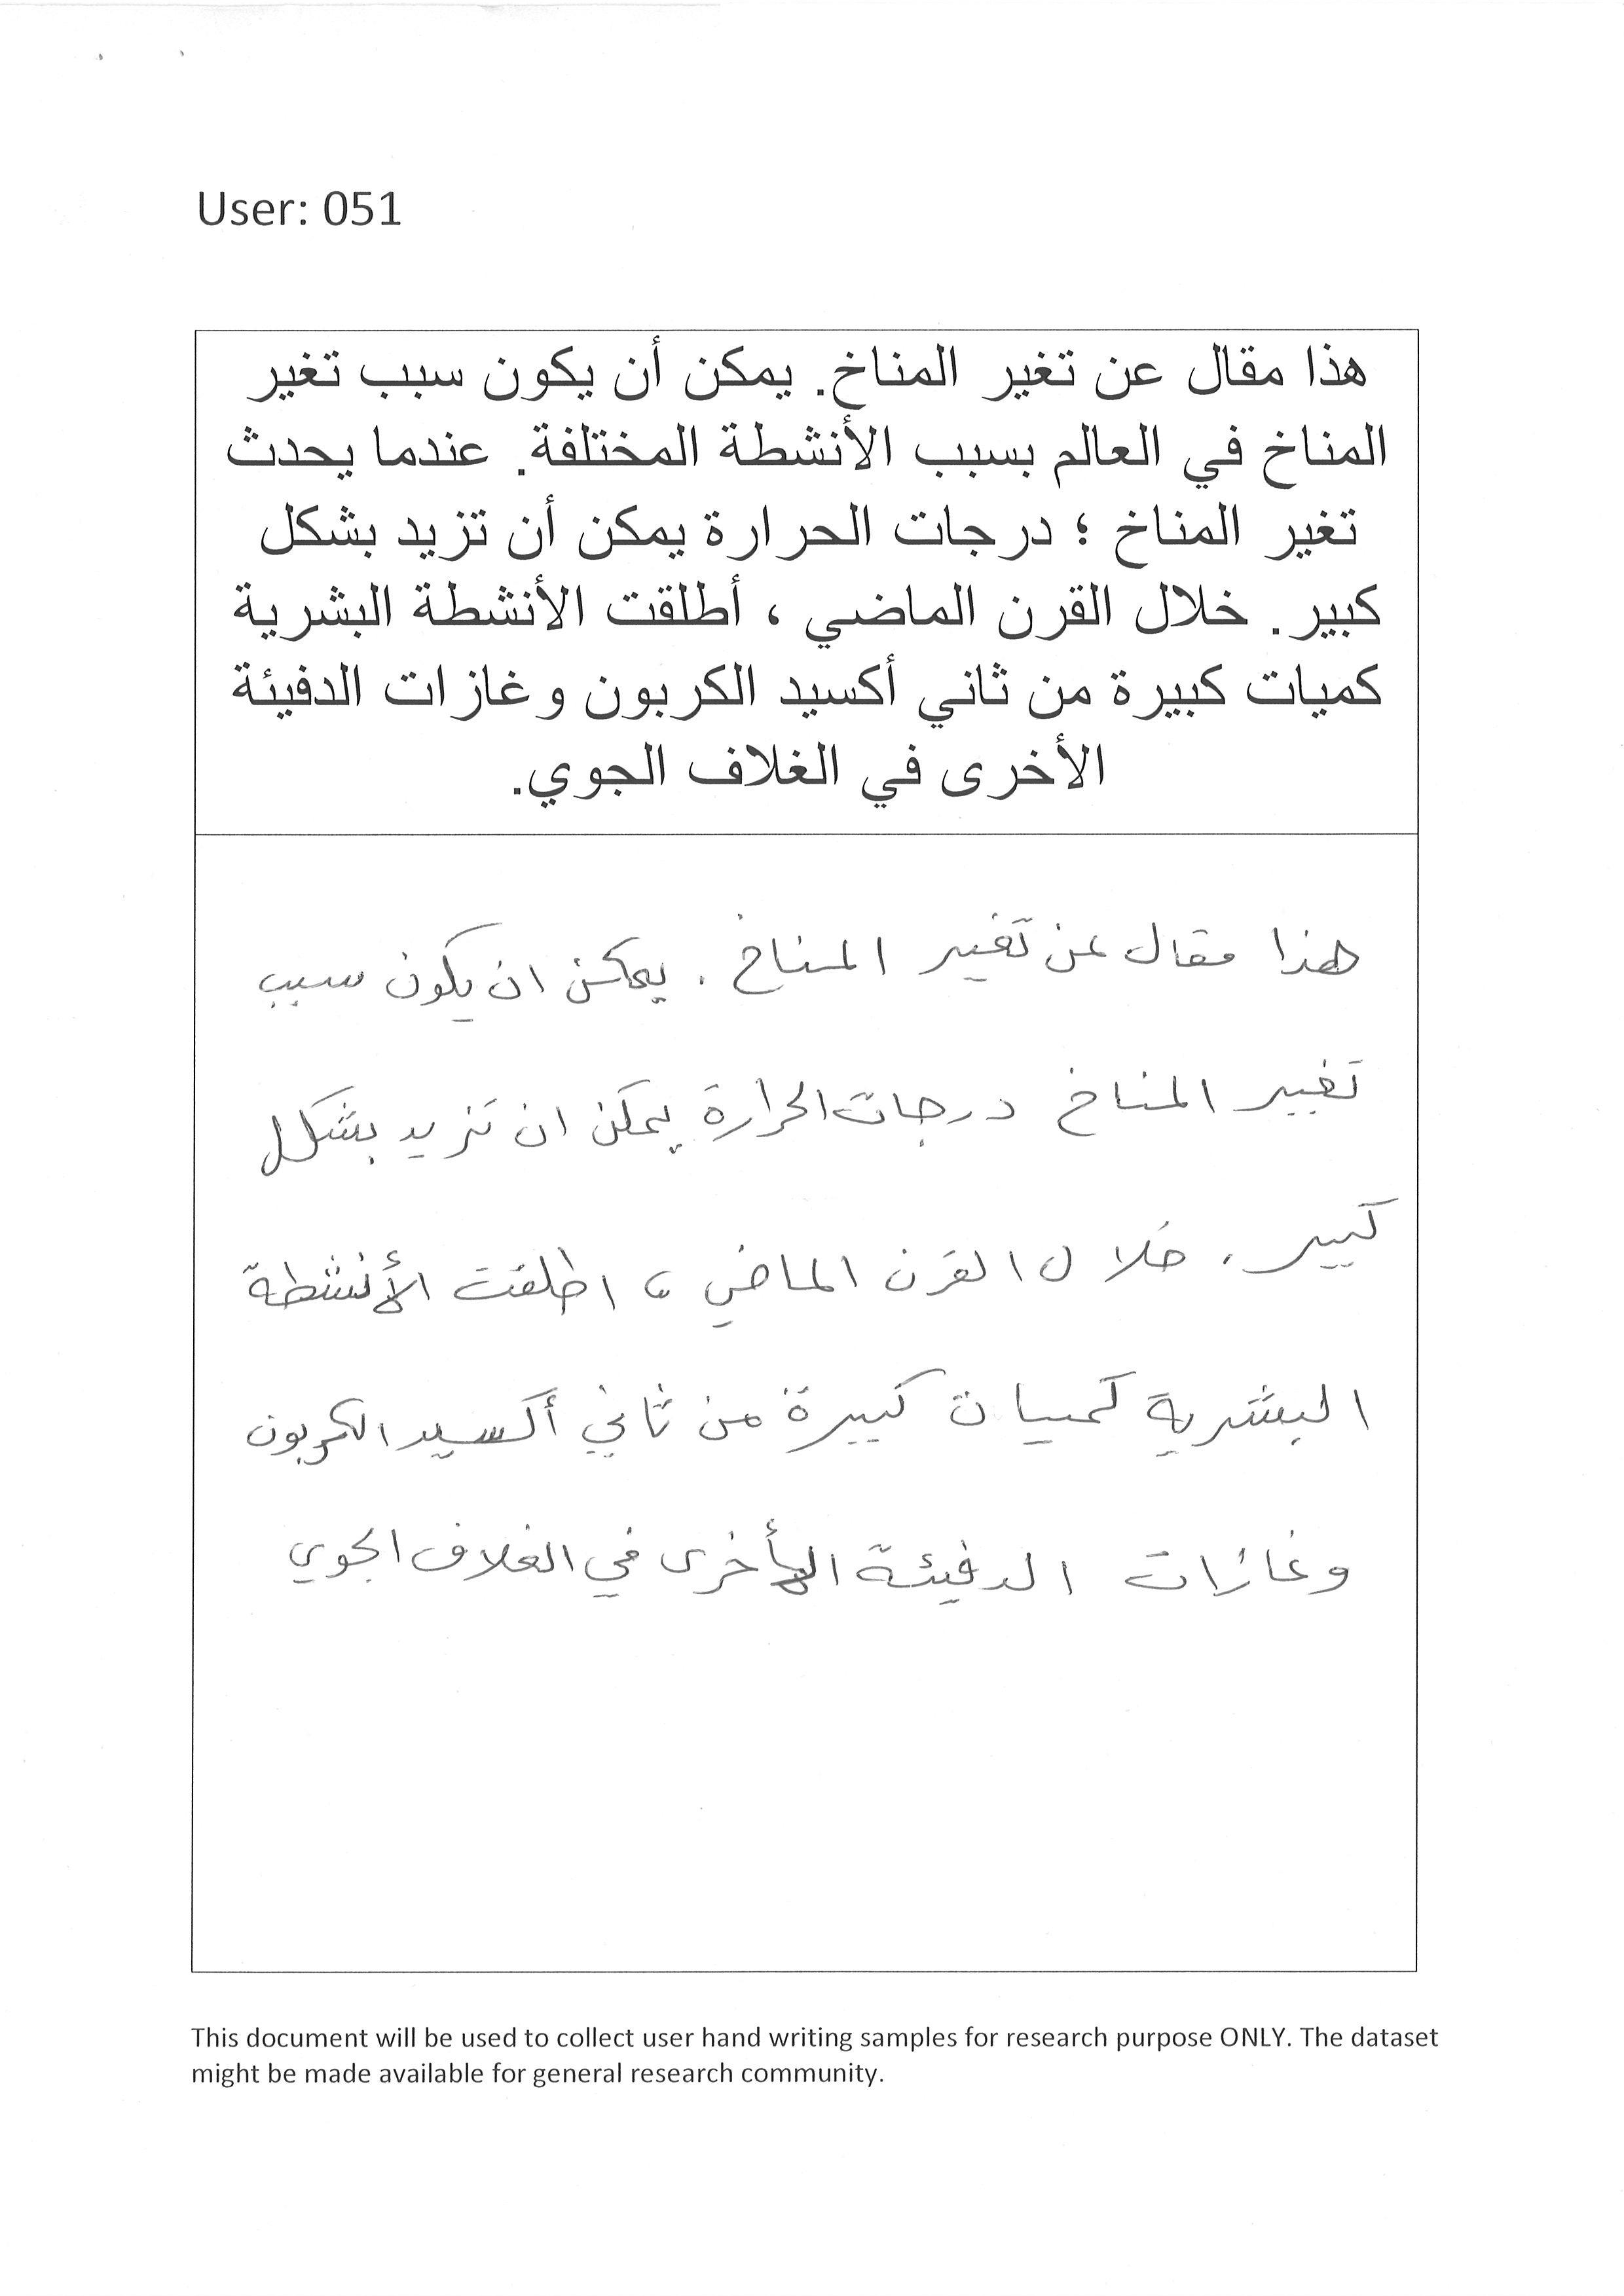 User: 051
هذا مقال عن تغير المناخ. يمكن أن يكون سبب تغير
المناخ في العالم بسبب الأنشطة المختلفة. عندما يحدث
تغير المناخ ؛ درجات الحرارة يمكن أن تزيد بشكل
كبير. خلال القرن الماضي ، أطلقت الأنشطة البشرية
كميات كبيرة من ثاني أكسيد الكربون وغازات الدفيئة
الأخرى في الغلاف الجوي.
هذا مقال عن تغير المناخ . يمكن ان يكون سبب
تغيير المناخ درجات الحرارة يمكن ان تزيد بشكل
كبير . خلال القرن الماضي ، اطلقت الأنشطة
البشرية كميات كبيرة من ثاني أكسيد الكربون
وغازات الدفيئة الأخرى في الغلاف الجوي
This document will be used to collect user hand writing samples for research purpose ONLY. The dataset
might be made available for general research community.